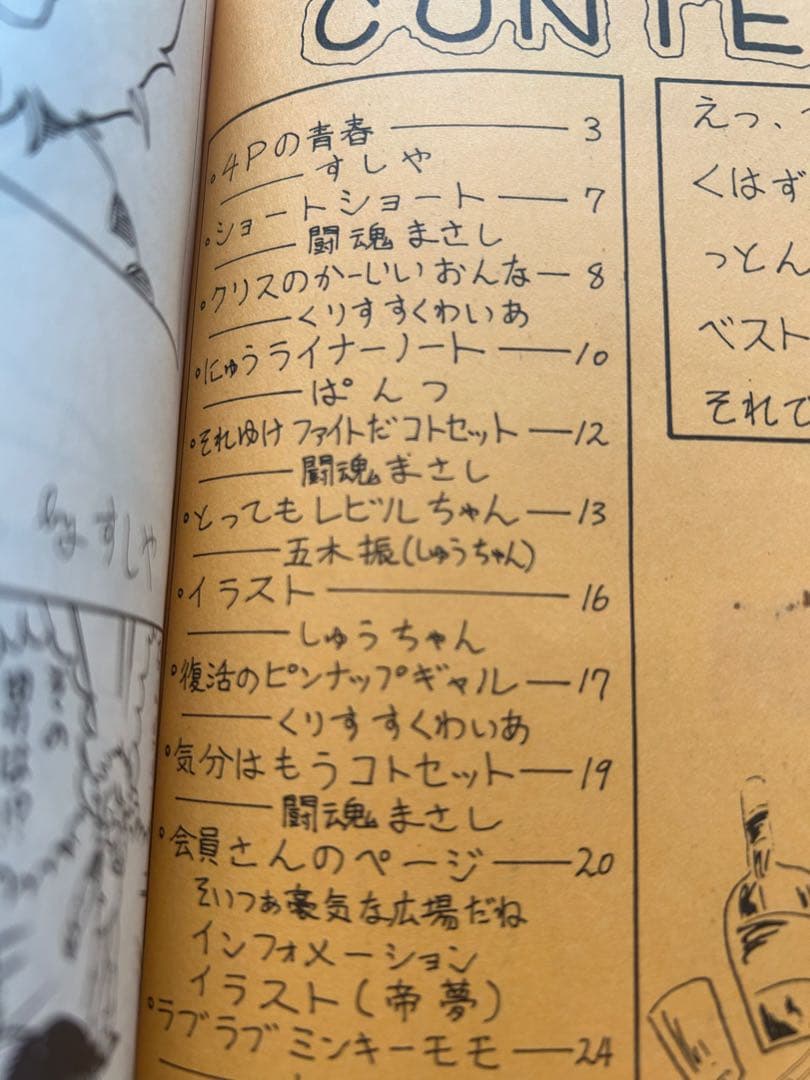 CONTE
・4Pの青春 ── 3
── すしや
・ショートショート ── 7
── 闘魂まさし
・クリスのかーいいおんな ─ 8
── くりすすくわいあ
・にゅうライナーノート ── 10
── ぱんつ
・それゆけファイトだコトセット ─ 12
── 闘魂まさし
・とってもレビルちゃん ─ 13
── 五木振(しゅうちゃん)
・イラスト ── 16
── しゅうちゃん
・復活のピンナップギャル ─ 17
── くりすすくわいあ
・気分はもうコトセット ─ 19
── 闘魂まさし
・会員さんのページ ── 20
そいつぁ豪気な広場だね
インフォメーション
イラスト(帝夢)
・ラブラブミンキーモモ ── 24
えっ、
くはず
っとん
ベスト
それで
by すしや